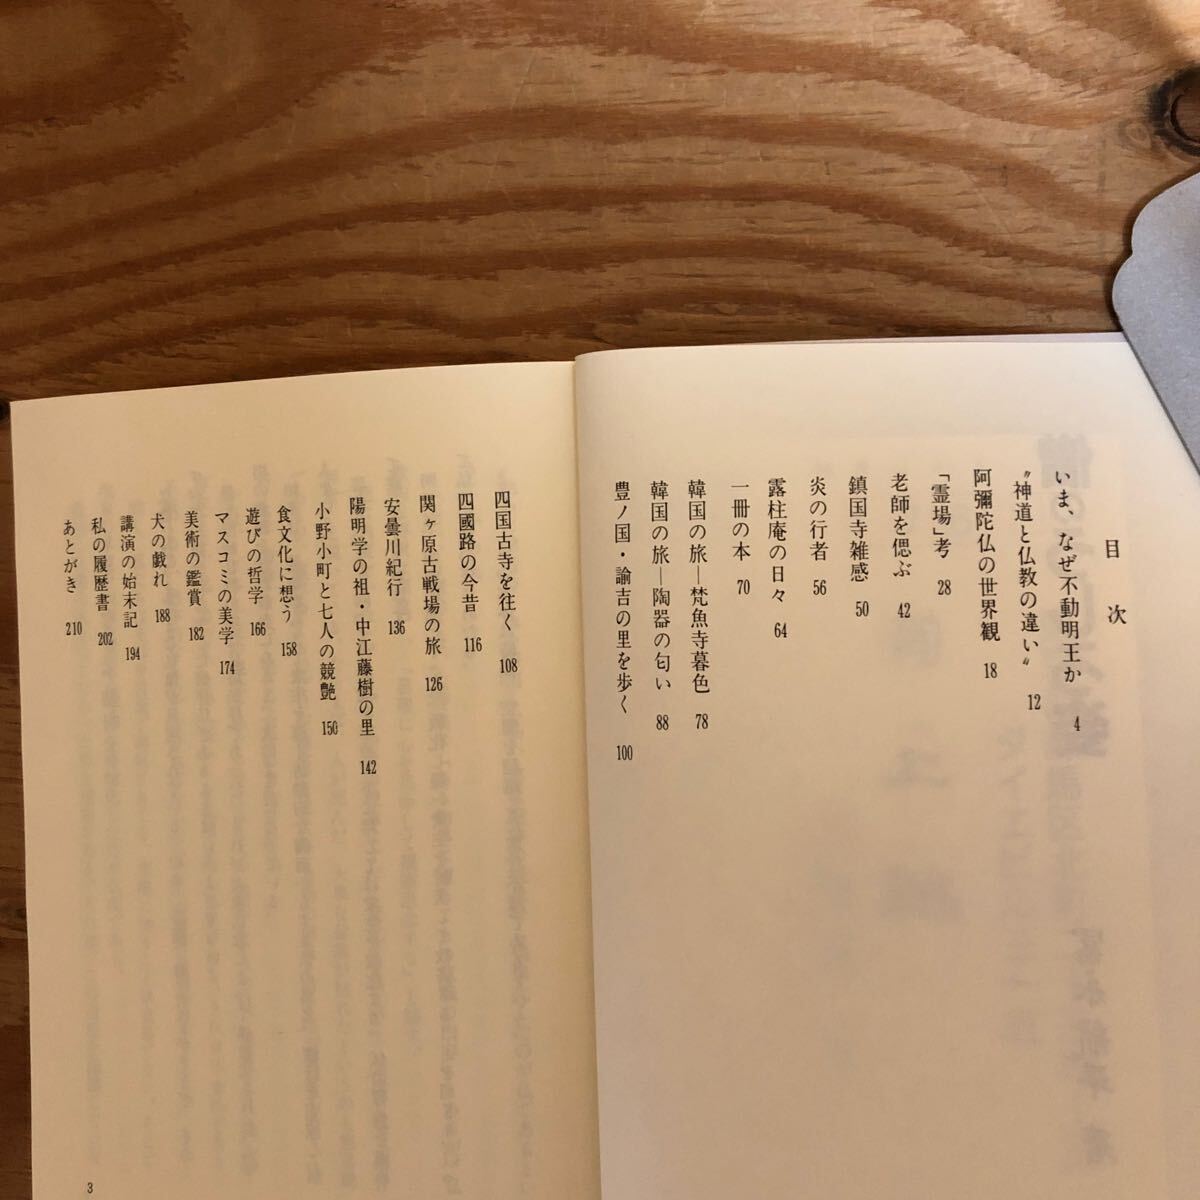 目次
いま、なぜ不動明王か 4
〝神道と仏教の違い〟 12
阿彌陀仏の世界観 18
「霊場」考 28
老師を偲ぶ 42
鎮国寺雑感 50
炎の行者 56
露柱庵の日々 64
一冊の本 70
韓国の旅―梵魚寺暮色 78
韓国の旅―陶器の匂い 88
豊ノ国・諭吉の里を歩く 100
四国古寺を往く 108
四國路の今昔 116
関ヶ原古戦場の旅 126
安曇川紀行 136
陽明学の祖・中江藤樹の里 142
小野小町と七人の競艶 150
食文化に想う 158
遊びの哲学 166
マスコミの美学 174
美術の鑑賞 182
犬の戯れ 188
講演の始末記 194
私の履歴書 202
あとがき 210
3